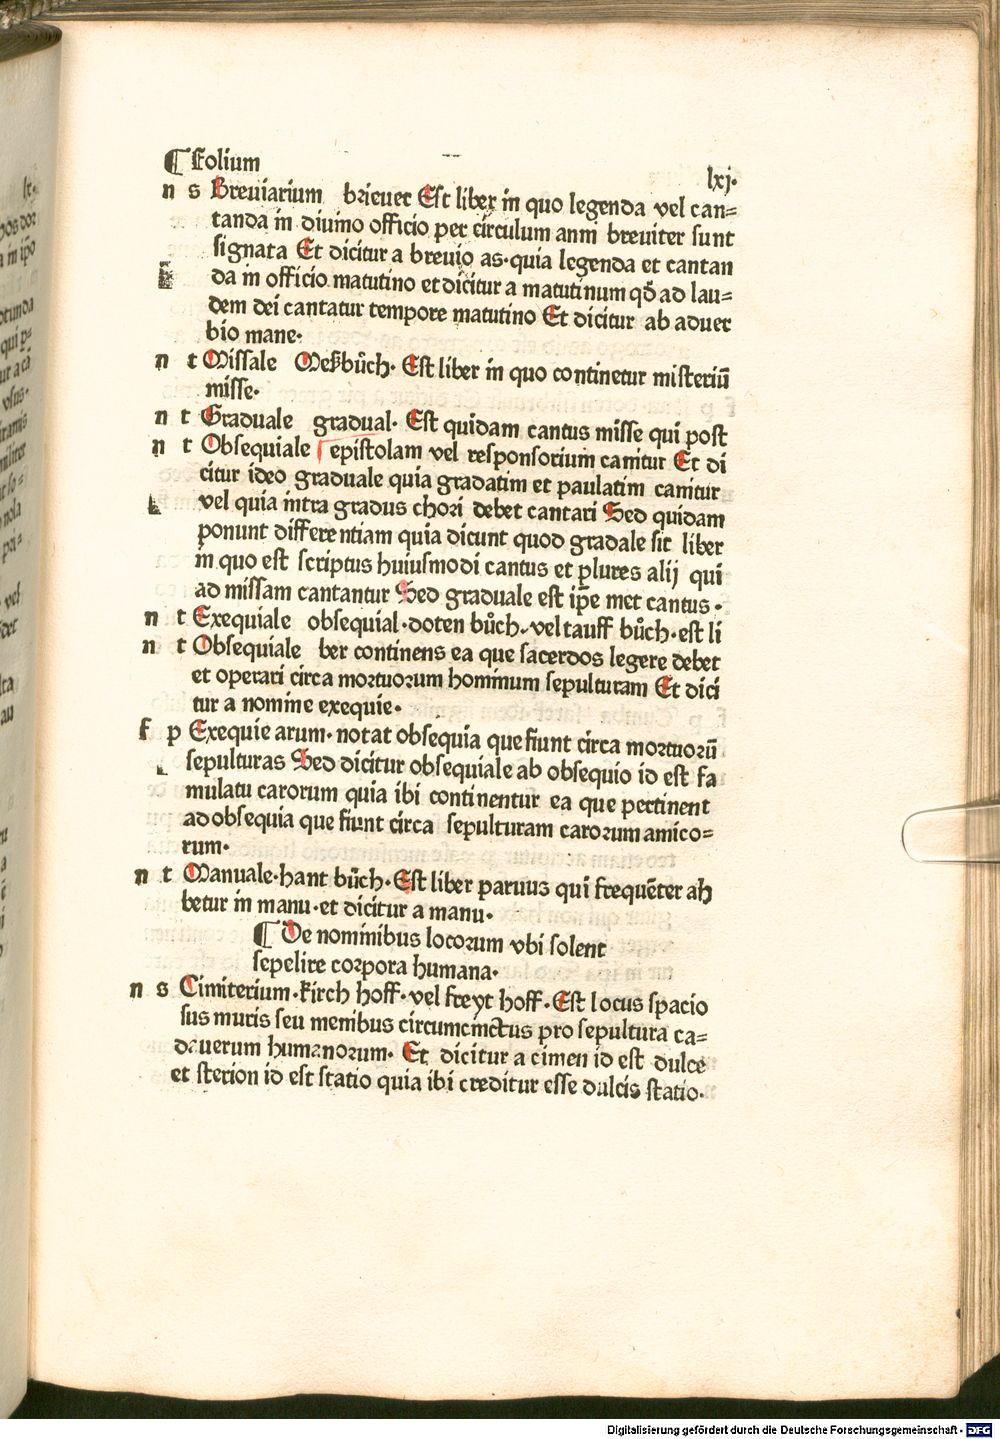 ¶ Folium lxj.
n s Breuiarium brieuer Est liber in quo legenda vel can=
tanda in diuino officio per circulum anni breuiter sunt
signata Et dicitur a breuio as. quia legenda et cantan
da in officio matutino et dicitur a matutinum qđ ad lau=
dem dei cantatur tempore matutino Et dicitur ab aduer
bio mane.
n t Missale Meßbůch. Est liber in quo continetur misteriū
misse.
n t Graduale gradual. Est quidam cantus misse qui post
n t Obsequiale epistolam vel responsorium canitur Et di
citur ideo graduale quia gradatim et paulatim canitur
vel quia intra gradus chori debet cantari Sed quidam
ponunt differentiam quia dicunt quod gradale sit liber
in quo est scriptus huiusmodi cantus et plures alij qui
ad missam cantantur Sed graduale est ip̄e met cantus.
n t Exequiale obsequial. doten bůch. vel tauff bůch. est li
n t Obsequiale ber continens ea que sacerdos legere debet
et operari circa mortuorum hominum sepulturam Et dici
tur a nomine exequie.
f p Exequie arum. notat obsequia que fiunt circa mortuorū
sepulturas Sed dicitur obsequiale ab obsequio id est fa
mulatu carorum quia ibi continentur ea que pertinent
ad obsequia que fiunt circa sepulturam carorum amico=
rum.
n t Manuale. hant bůch. Est liber paruus qui frequēter ah
betur in manu. et dicitur a manu.
¶ De nominibus locorum vbi solent
sepelire corpora humana.
n s Cimiterium. kirch hoff. vel freyt hoff. Est locus spacio
sus muris seu menibus circumcinctus pro sepultura ca=
dauerum humanorum. Et dicitur a cimen id est dulce
et sterion id est statio quia ibi creditur esse dulcis statio.
Digitalisierung gefördert durch die Deutsche Forschungsgemeinschaft - DFG